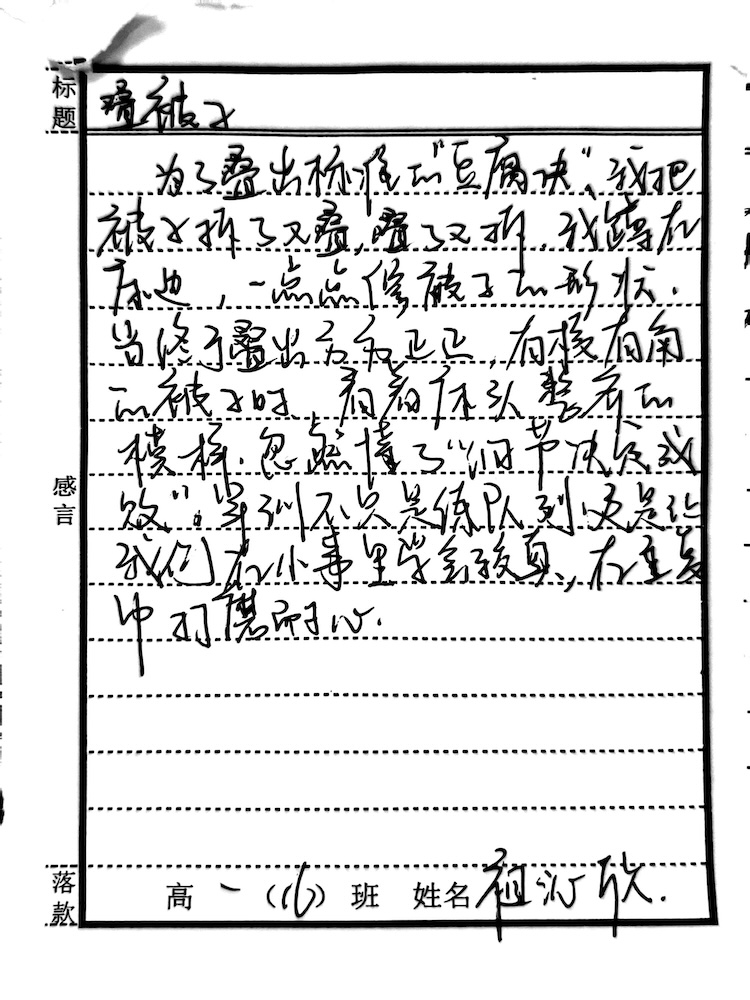 标题
叠被子
为了叠出标准的“豆腐块”、我把
被子拆了又叠,叠了又拆.我蹲在
床边,一点点修被子的形状.
当终于叠出方方正正,有棱有角
的被子时,看着床头整齐的
模样.忽然懂了“细节决定成
败”。军训不只是练队列,更是让
我们在小事里学会较真,在重复
中打磨耐心.
感言
落款
高一(16)班 姓名 祖汀欣.